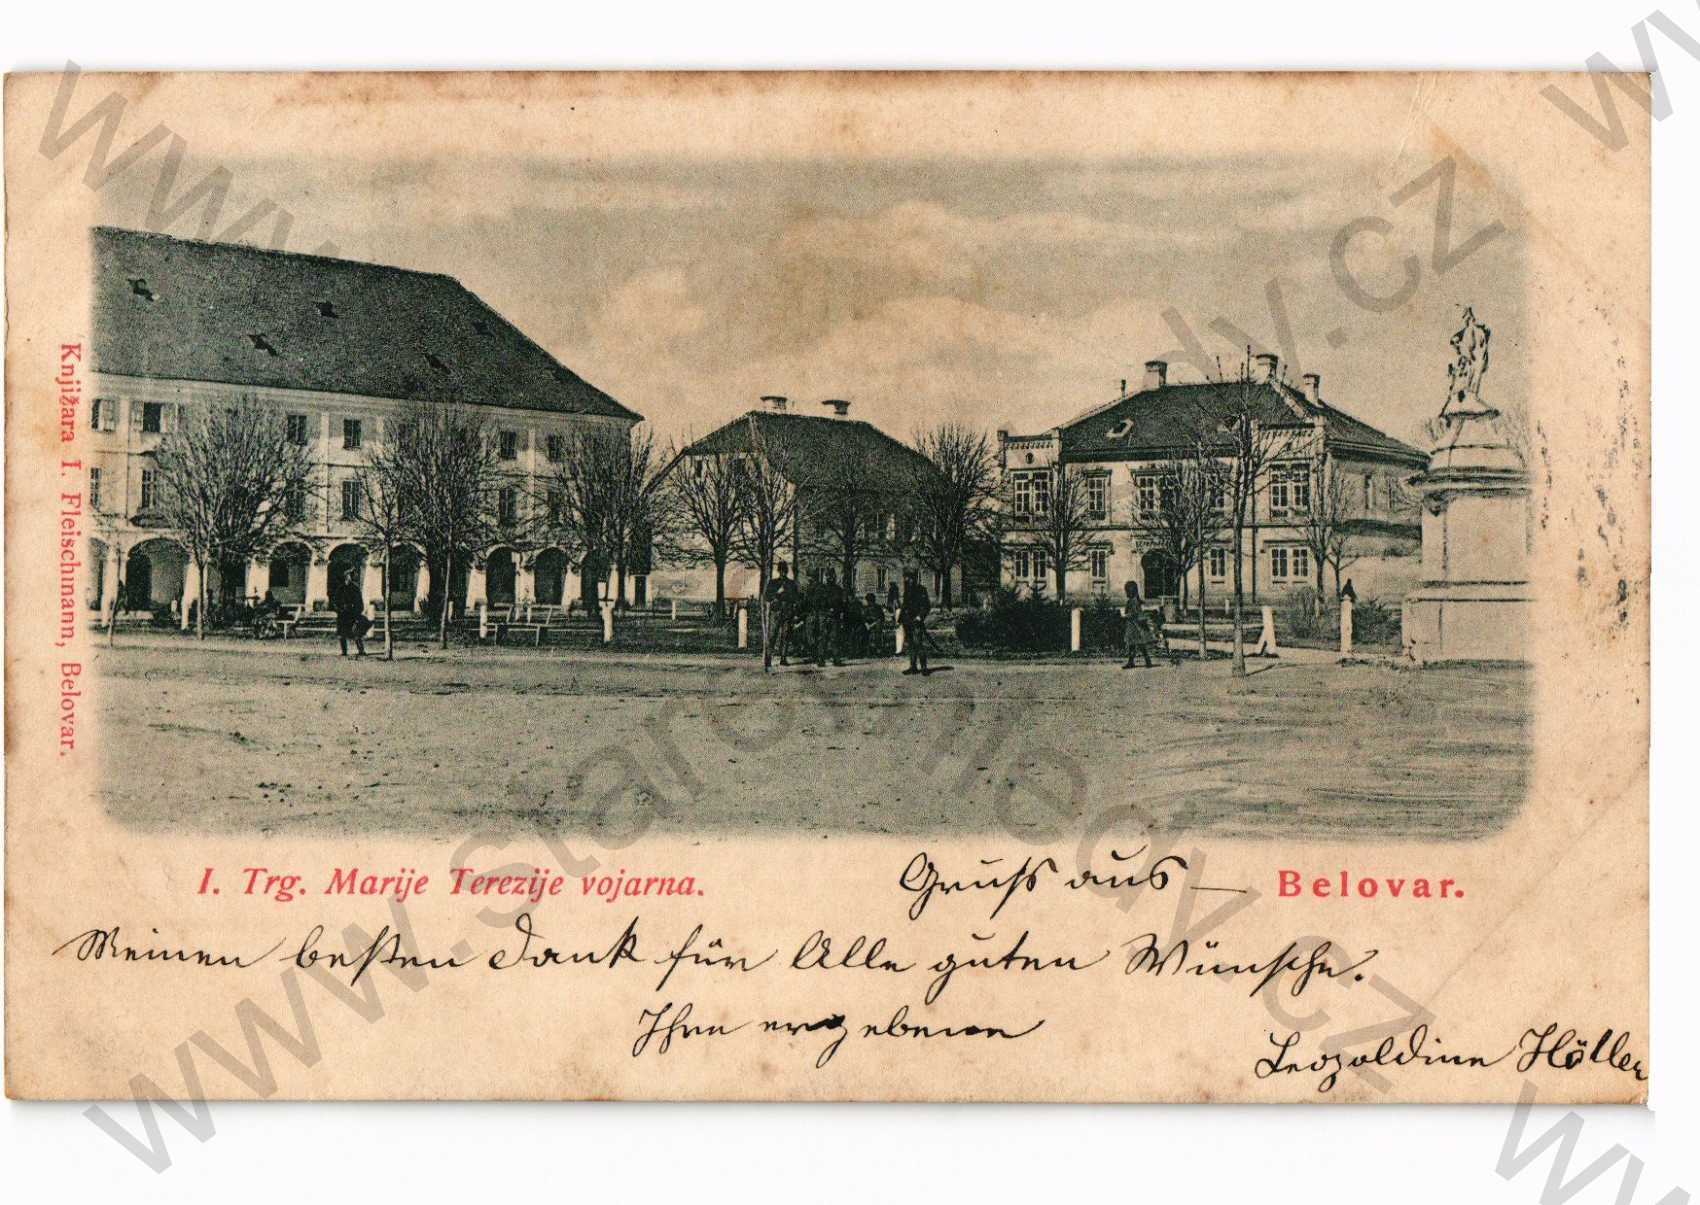 Knjižara I. Fleischmann, Belovar.
I. Trg. Marije Terezije vojarna.
Gruß aus — Belovar.
Meinen besten Dank für Alle guten Wünsche.
Ihre ergebene
Leopoldine Höller
www.starepohledy.cz